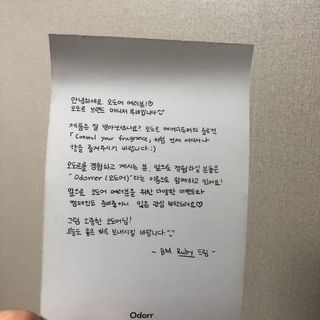 안녕하세요 오도어 여러분!♡
오도르 브랜드 매니저 루비입니다
제품은 잘 받아보셨나요? 오도르 에어디퓨저의 슬로건
「Control your fragrance」처럼 언제 어디서나
향을 즐겨주시기 바랍니다 :)
오도르를 경험하고 계시는 분, 앞으로 경험하실 분들은
"Odorrer (오도어)"라는 이름으로 함께하고 있어요!
앞으로 오도어 여러분을 위한 다양한 이벤트와
캠페인도 준비중이니 많은 관심 부탁드려요♡
그럼 소중한 오도어님!
오늘도 좋은 하루 보내시길 바랍니다.
- BM Ruby 드림 -
Odorr